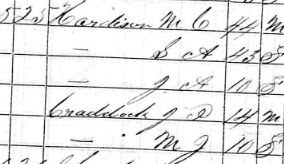 525 Hardison M C 44 M
— S A 43 F
— J A 10 F
Craddock J D 14 M
— M J 10 F